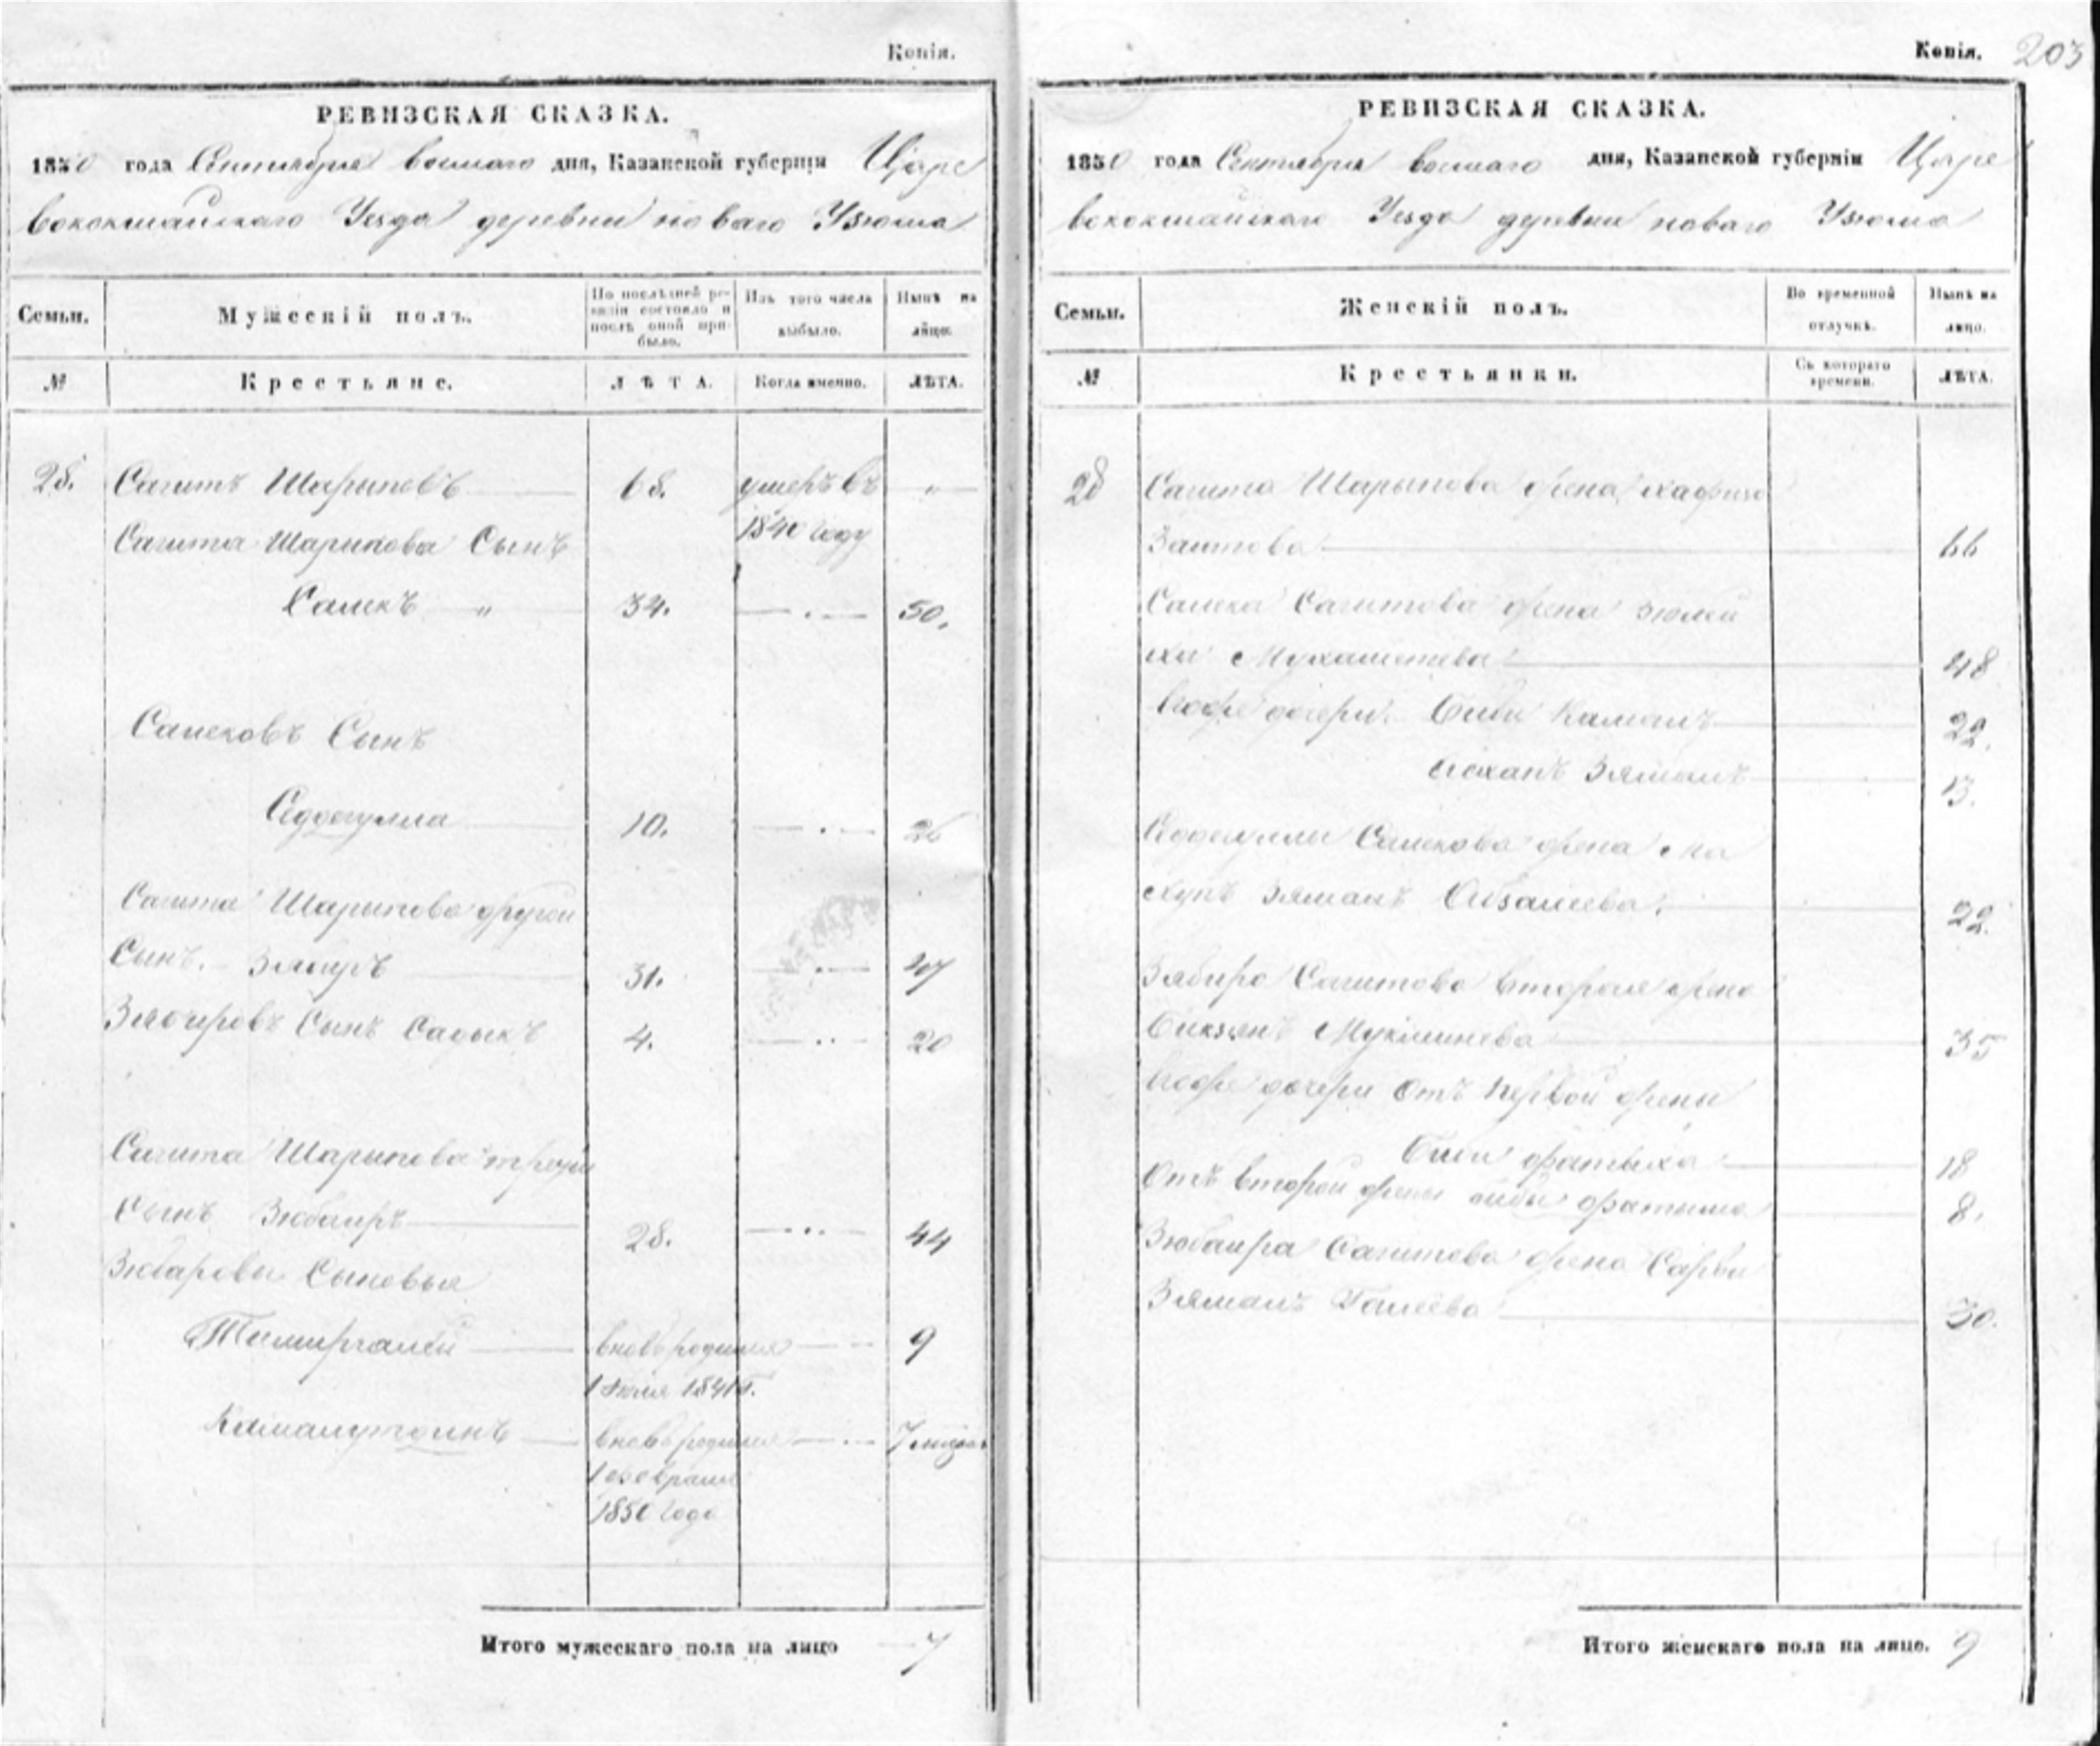 Копія.
РЕВИЗСКАЯ СКАЗКА.
1850 года Сентября восмаго дня, Казанской губерніи Царе
вококшайскаго Уезда деревни новаго Узюма
Семьи. Мужескій полъ. По послѣдней ревизіи состояло и послѣ оной прибыло. Изъ того числа выбыло. Нынѣ на лицо.
№ Крестьяне. ЛѢТА. Когда именно. ЛѢТА.
28. Сагитъ Шарыповъ 68. умеръ въ "
Сагита Шарипова Сынъ 1840 году
Салекъ " 34. 50.
Салековъ Сынъ
Седдегулла 10. 26
Сагита Шарыпова другой
Сынъ. Зябиръ 31. 47
Зябировъ Сынъ Садыкъ 4. 20
Сагита Шарыпова третей
Сынъ Зюбаиръ 28. 44
Зюбаровы Сыновья
Тимиргалей вновь родился 9
1 Июля 1841 г.
Камалутдинъ вновь родился 7 месяц.
1 февраля
1850 года
Итого мужескаго пола на лицо 7
Копія. 203
РЕВИЗСКАЯ СКАЗКА.
1850 года Сентября восмаго дня, Казанской губерніи Царе
вококшайскаго Уезда деревни новаго Узюма
Семьи. Женскій полъ. Во временной отлучкѣ. Нынѣ на лицо.
№ Крестьянки. Съ котораго времени. ЛѢТА.
28 Сагита Шарыпова жена хафиза
Заитова 66
Салека Сагитова жена зюлей
ха Мухаметева 48
Егоже дочери. Биби Камалъ 22.
Зяманъ 13.
Седдегуллы Салекова жена Ма
хупъ Зяманъ 22.
Зябира Сагитова вторая жена
Бикзянъ 35
Егоже дочери отъ первой жены
Биби фатыха 18
Отъ второй жены биби фатыма 8.
Зюбаира Сагитова жена Сарви
Зяманъ Галеева 30.
Итого женскаго пола на лицо. 9